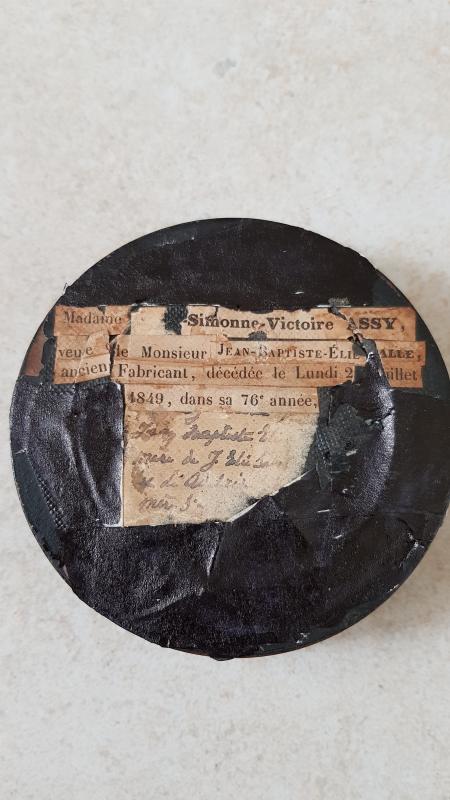 Madame -Simonne-Victoire ASSY,
veuve de Monsieur JEAN-BAPTISTE-ÉLIE ALLE,
ancien Fabricant, décédée le Lundi 2 uillet
1849, dans sa 76e année,
Baptiste
mere de J. Elie
et d'